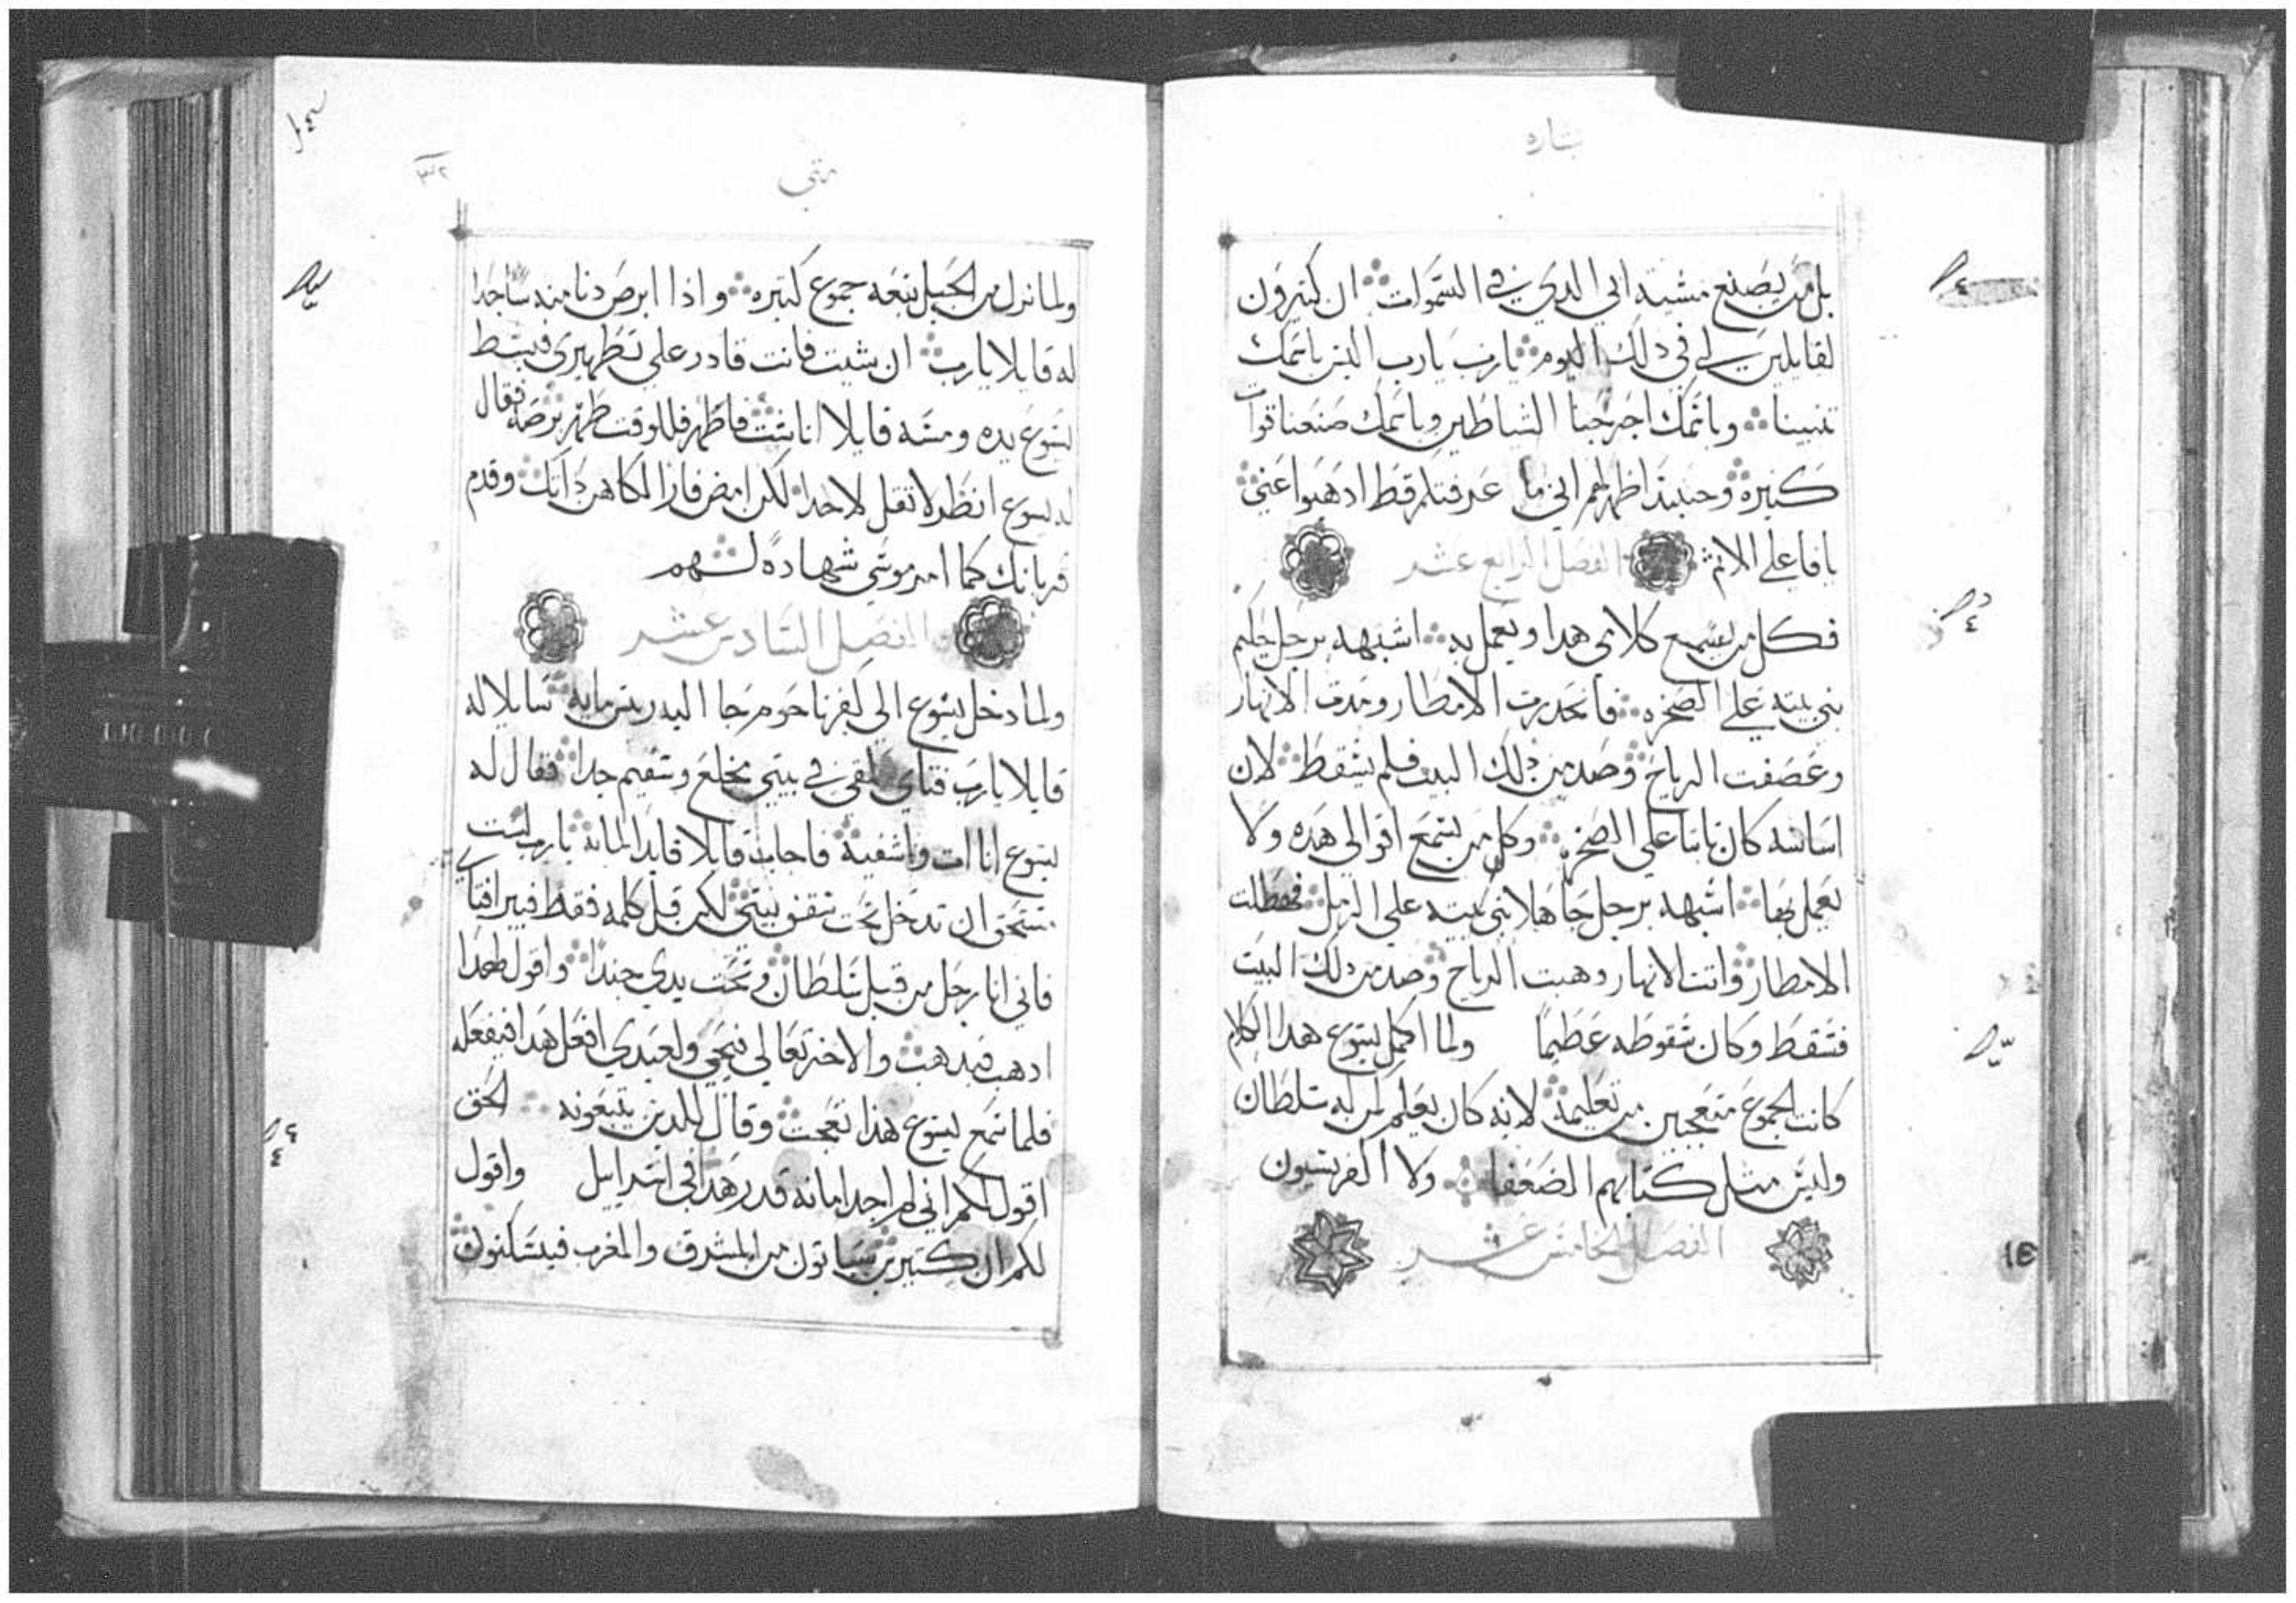 بشاره
بل من يصنع مشية ابي الدي في السموات ان كتيرون
لقايلين لي في دلك اليوم يارب يارب اليس باسمك
تنبينا وباسمك اخرجنا الشياطين وباسمك صنعنا قوات
كتيرة وحينيد اظهر لهم اني ما عرفتكم قط ادهبوا عني
يافاعلي الاثم الفصل الرابع عشر
فكل من يسمع كلامي هدا ويعمل به اشبهه برجل حكيم
بني بيته علي الصخره فانحدرت الامطار ومدت الانهار
وعصفت الرياح وصدمن دلك البيت فلم يسقط لان
اساسه كان تابتا علي الصخره وكل من يسمع اقوالي هده ولا
يعمل بها اشبهه برجل جاهلا بني بيته علي الرمل فهطلت
الامطار واتت الانهار وهبت الرياح وصدمن دلك البيت
فسقط وكان سقوطه عظيما ولما اكمل يسوع هدا الكلام
كانت الجموع متعجبين من تعليمه لانه كان يعلم كمن له سلطان
وليس مثل كتابهم الضعفا ولا الفريسيون
الفصل الخامس عشر
متي
ولما نزل من الجبل تبعه جموع كتيره واذا ابرص دنا منه ساجدا
له قايلا يارب ان شيت فانت قادر علي تطهيري فبسط
يسوع يده ومسه قايلا انا شئت فاطهر فللوقت طهر برصه فقال
له يسوع انظر لا تقل لاحد لكن امض فار الكاهن داتك وقدم
قربانك كما امر موسي شهادة لهم
الفصل السادس عشر
ولما دخل يسوع الي كفرناحوم جا اليه ريس مايه سايلا له
قايلا يارب فتاي ملقي في بيتي مخلع وسقيم جدا فقال له
يسوع انا ات واشفيه فاجابه قايلا قايد الماىه يارب لست
مستحق ان تدخل تحت سقف بيتي لكن قل كلمه فقط فيبرا فتاي
فاني انا رجل من قبل سلطان وتحت يدي جندا واقول لهدا
ادهب فيدهب والاخر تعالي فيجي ولعبدي افعل هدا فيفعله
فلما سمع يسوع هذا تعجب وقال للدين يتبعونه الحق
اقول لكم اني لم اجد امانه قدر هدا في اسراييل واقول
لكم ان كتيرين سياتون من المشرق والمغرب فيتكنون